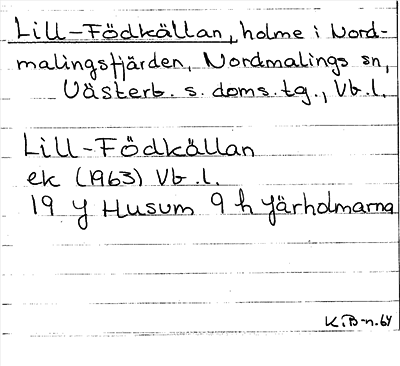 Lill-Födkällan, holme i Nord-
malingsfjärden, Nordmalings sn,
Västerb. s. doms.tg., Vb.l.
Lill-Födkällan
ek (1963) Vb.l.
19 y Husum 9 h Järholmarna
K.B-n.64